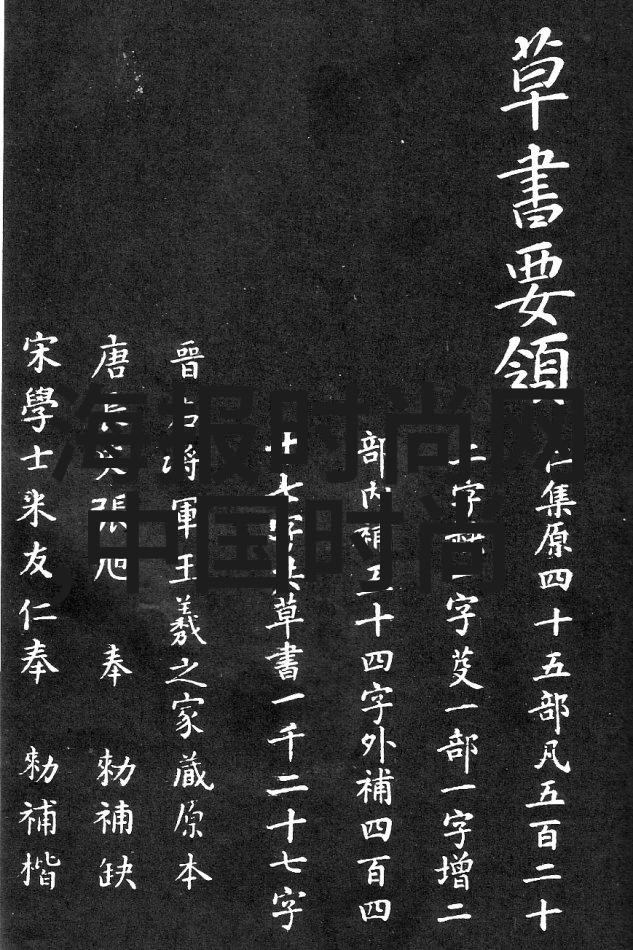 草書要領
仁集原四十五部凡五百二十
二字一字芟一部一字增二
部內補五十四字外補四百四
十七字共草書一千二十七字
晉右將軍王羲之家藏原本
唐長史張旭 奉 勅補缺
宋學士米友仁奉 勅補楷
海报时尚网
,中国时尚